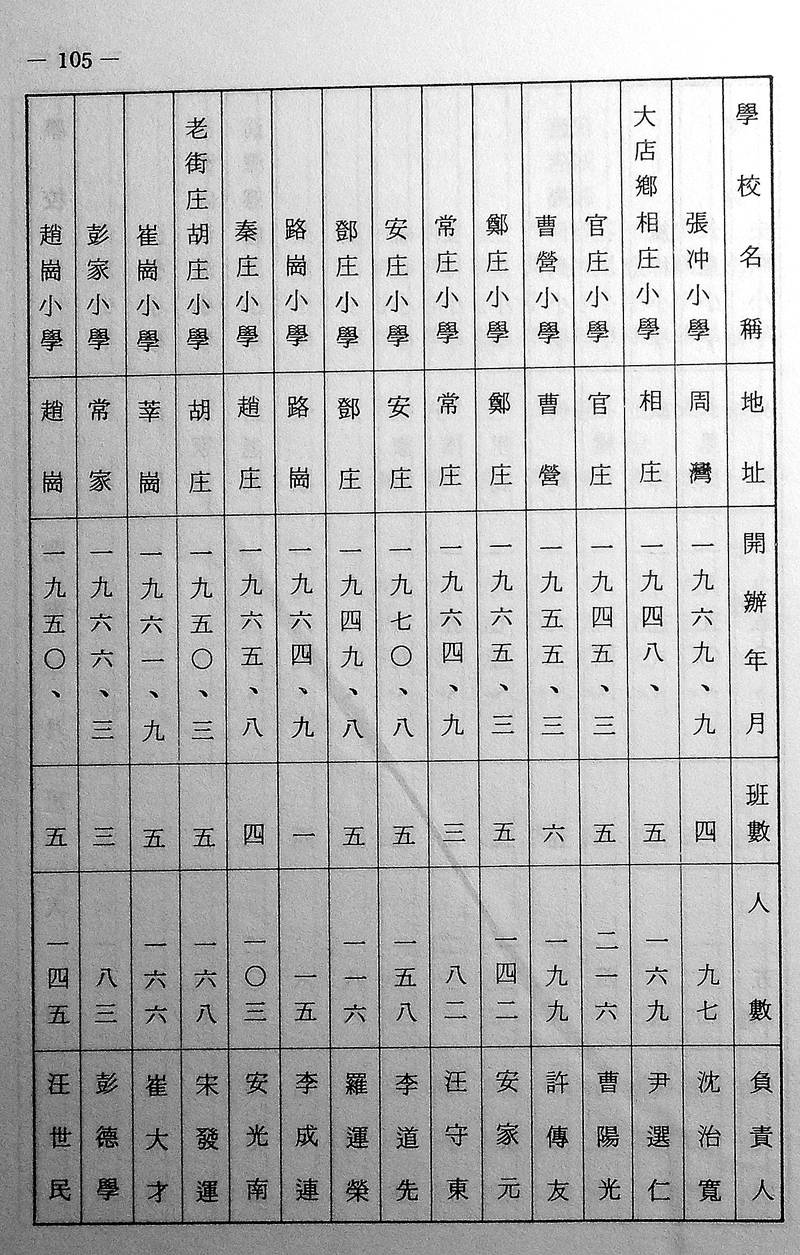 — 105 —
學校名稱 地址 開辦年月 班數 人數 負責人
張冲小學 周灣 一九六九、九 四 九七 沈治寬
大店鄉相庄小學 相庄 一九四八、 五 一六九 尹選仁
官庄小學 官庄 一九四五、三 五 二一六 曹陽光
曹營小學 曹營 一九五五、三 六 一九九 許傳友
鄭庄小學 鄭庄 一九六五、三 五 一四二 安家元
常庄小學 常庄 一九六四、九 三 八二 汪守東
安庄小學 安庄 一九七〇、八 五 一五八 李道先
鄧庄小學 鄧庄 一九四九、八 五 一一六 羅運榮
路崗小學 路崗 一九六四、九 一 一五 李成連
秦庄小學 趙庄 一九六五、八 四 一〇三 安光南
老街庄胡庄小學 胡庄 一九五〇、三 五 一六八 宋發運
崔崗小學 莘崗 一九六一、九 五 一六六 崔大才
彭家小學 常家 一九六六、三 三 八三 彭德學
趙崗小學 趙崗 一九五〇、 五 一四五 汪世民